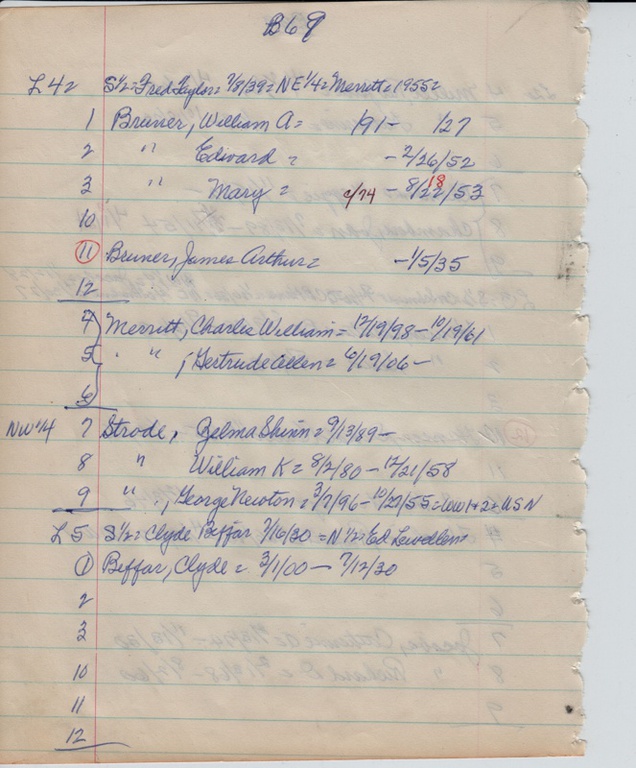 B69
L 4= S½=Fred Taylor= 7/8/39= NE¼= Merrett= 1955=
1 Bruner, William A= /91- /27
2 " Edward = -2/26/52
3 " Mary = c/74 -8/22/53 18
10
11 Bruner, James Arthur= -1/5/35
12
4 Merritt, Charles William= 12/19/98-10/19/61
5 " " , Gertrude Allen= 6/19/06-
6
NW¼ 7 Strode, Zelma Shinn= 9/13/89-
8 " William K= 8/2/80-12/21/58
9 " , George Newton= 3/7/96-10/29/55=WW1+2=USN
L 5 S½= Clyde Beffar 7/16/30 =N½= Ed Lewellen=
1 Beffar, Clyde= 3/1/00-7/12/30
2
3
10
11
12